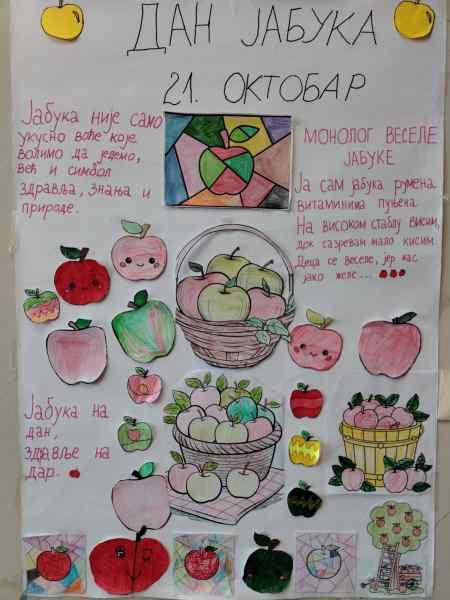 ДАН ЈАБУКА
21. ОКТОБАР
Јабука није само
укусно воће које
волимо да једемо,
већ и симбол
здравља, знања и
природе.
МОНОЛОГ ВЕСЕЛЕ
ЈАБУКЕ
Ја сам јабука румена,
витаминима пуњена.
На високом стаблу висим,
док сазревам мало кисим.
Деца се веселе, јер нас
јако желе...
Јабука на
дан,
здравље на
дар.